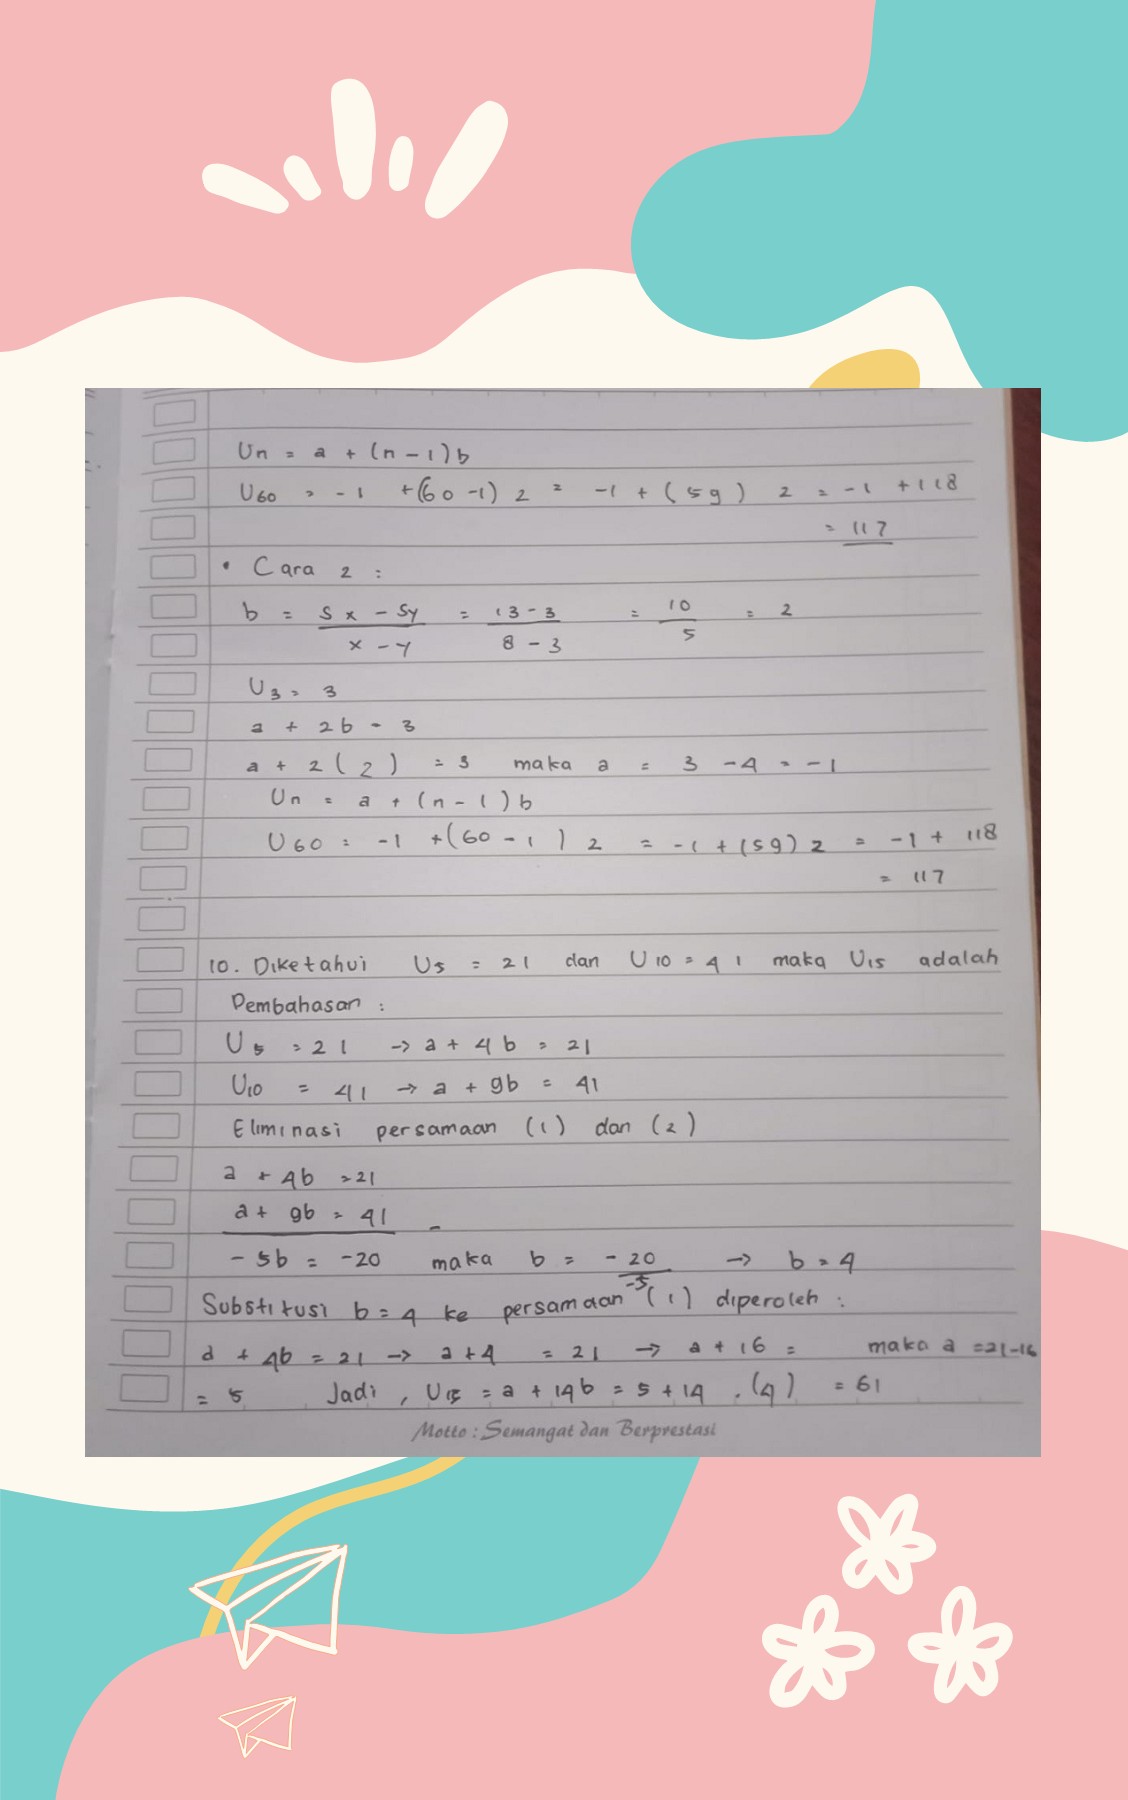 Un = a + (n - 1) b
U60 = -1 + (60 - 1) 2 = -1 + (59) 2 = -1 + 118
= 117
• Cara 2 :
b = Sx - Sy / x - y = 13 - 3 / 8 - 3 = 10 / 5 = 2
U3 = 3
a + 2b = 3
a + 2 ( 2 ) = 3 maka a = 3 - 4 = -1
Un = a + (n - 1) b
U60 = -1 + (60 - 1) 2 = -1 + (59) 2 = -1 + 118
= 117
10. Diketahui U5 = 21 dan U10 = 41 maka U15 adalah
Pembahasan :
U5 = 21 -> a + 4b = 21
U10 = 41 -> a + 9b = 41
Eliminasi persamaan (1) dan (2)
a + 4b = 21
a + 9b = 41 -
- 5b = -20 maka b = -20 / -5 -> b = 4
Substitusi b = 4 ke persamaan (1) diperoleh :
a + 4b = 21 -> a + 4 = 21 -> a + 16 = maka a = 21 - 16
= 5 Jadi , U15 = a + 14b = 5 + 14 . (4) = 61
Motto : Semangat dan Berprestasi